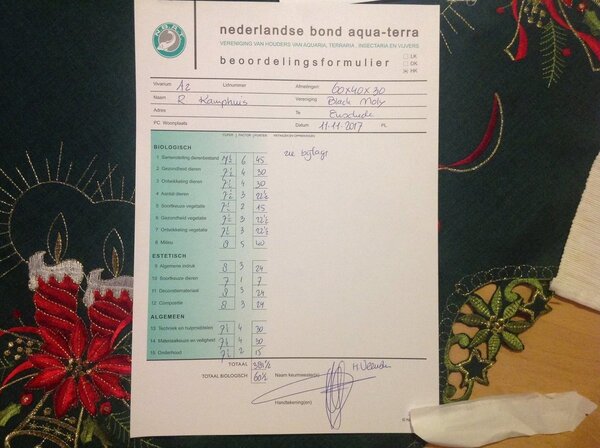 N.B.A.T.
nederlandse bond aqua-terra
VERENIGING VAN HOUDERS VAN AQUARIA, TERRARIA, INSECTARIA EN VIJVERS
beoordelingsformulier
LK
DK
HK
Vivarium A2 Lidnummer Afmetingen 60x40x30
Naam R Kamphuis Vereniging Black Molly
Adres Te Enschede
PC Woonplaats Datum 11-11-2017 PL
CIJFER FACTOR PUNTEN
BIOLOGISCH zie bijlage
1 Samenstelling dierenbestand 7½ 6 45
2 Gezondheid dieren 7½ 4 30
3 Ontwikkeling dieren 7½ 4 30
4 Aantal dieren 7½ 3 22½
5 Soortkeuze vegetatie 7½ 2 15
6 Gezondheid vegetatie 7½ 3 22½
7 Ontwikkeling vegetatie 7½ 3 22½
8 Milieu 8 5 40
ESTETISCH
9 Algemene indruk 8 3 24
10 Soortkeuze dieren 7 1 7
11 Decoratiemateriaal 8 3 24
12 Compositie 8 3 24
ALGEMEEN
13 Techniek en hulpmiddelen 7½ 4 30
14 Materiaalkeuze en veiligheid 7½ 4 30
15 Onderhoud 7½ 2 15
TOTAAL
TOTAAL BIOLOGISCH 60½ Naam keurmeester(s)
Handtekening(en)